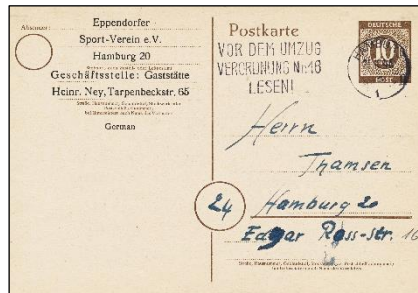 Absender:
Eppendorfer
Sport-Verein e.V.
Hamburg 20
Geschäftsstelle: Gaststätte
Heinr. Ney, Tarpenbeckstr. 65
German
Postkarte
VOR DEM UMZUG
VERORDNUNG Nr.16
LESEN!
DEUTSCHE
10
POST
Herrn
Thamsen
24
Hamburg 20
Edgar Ross-Str. 16